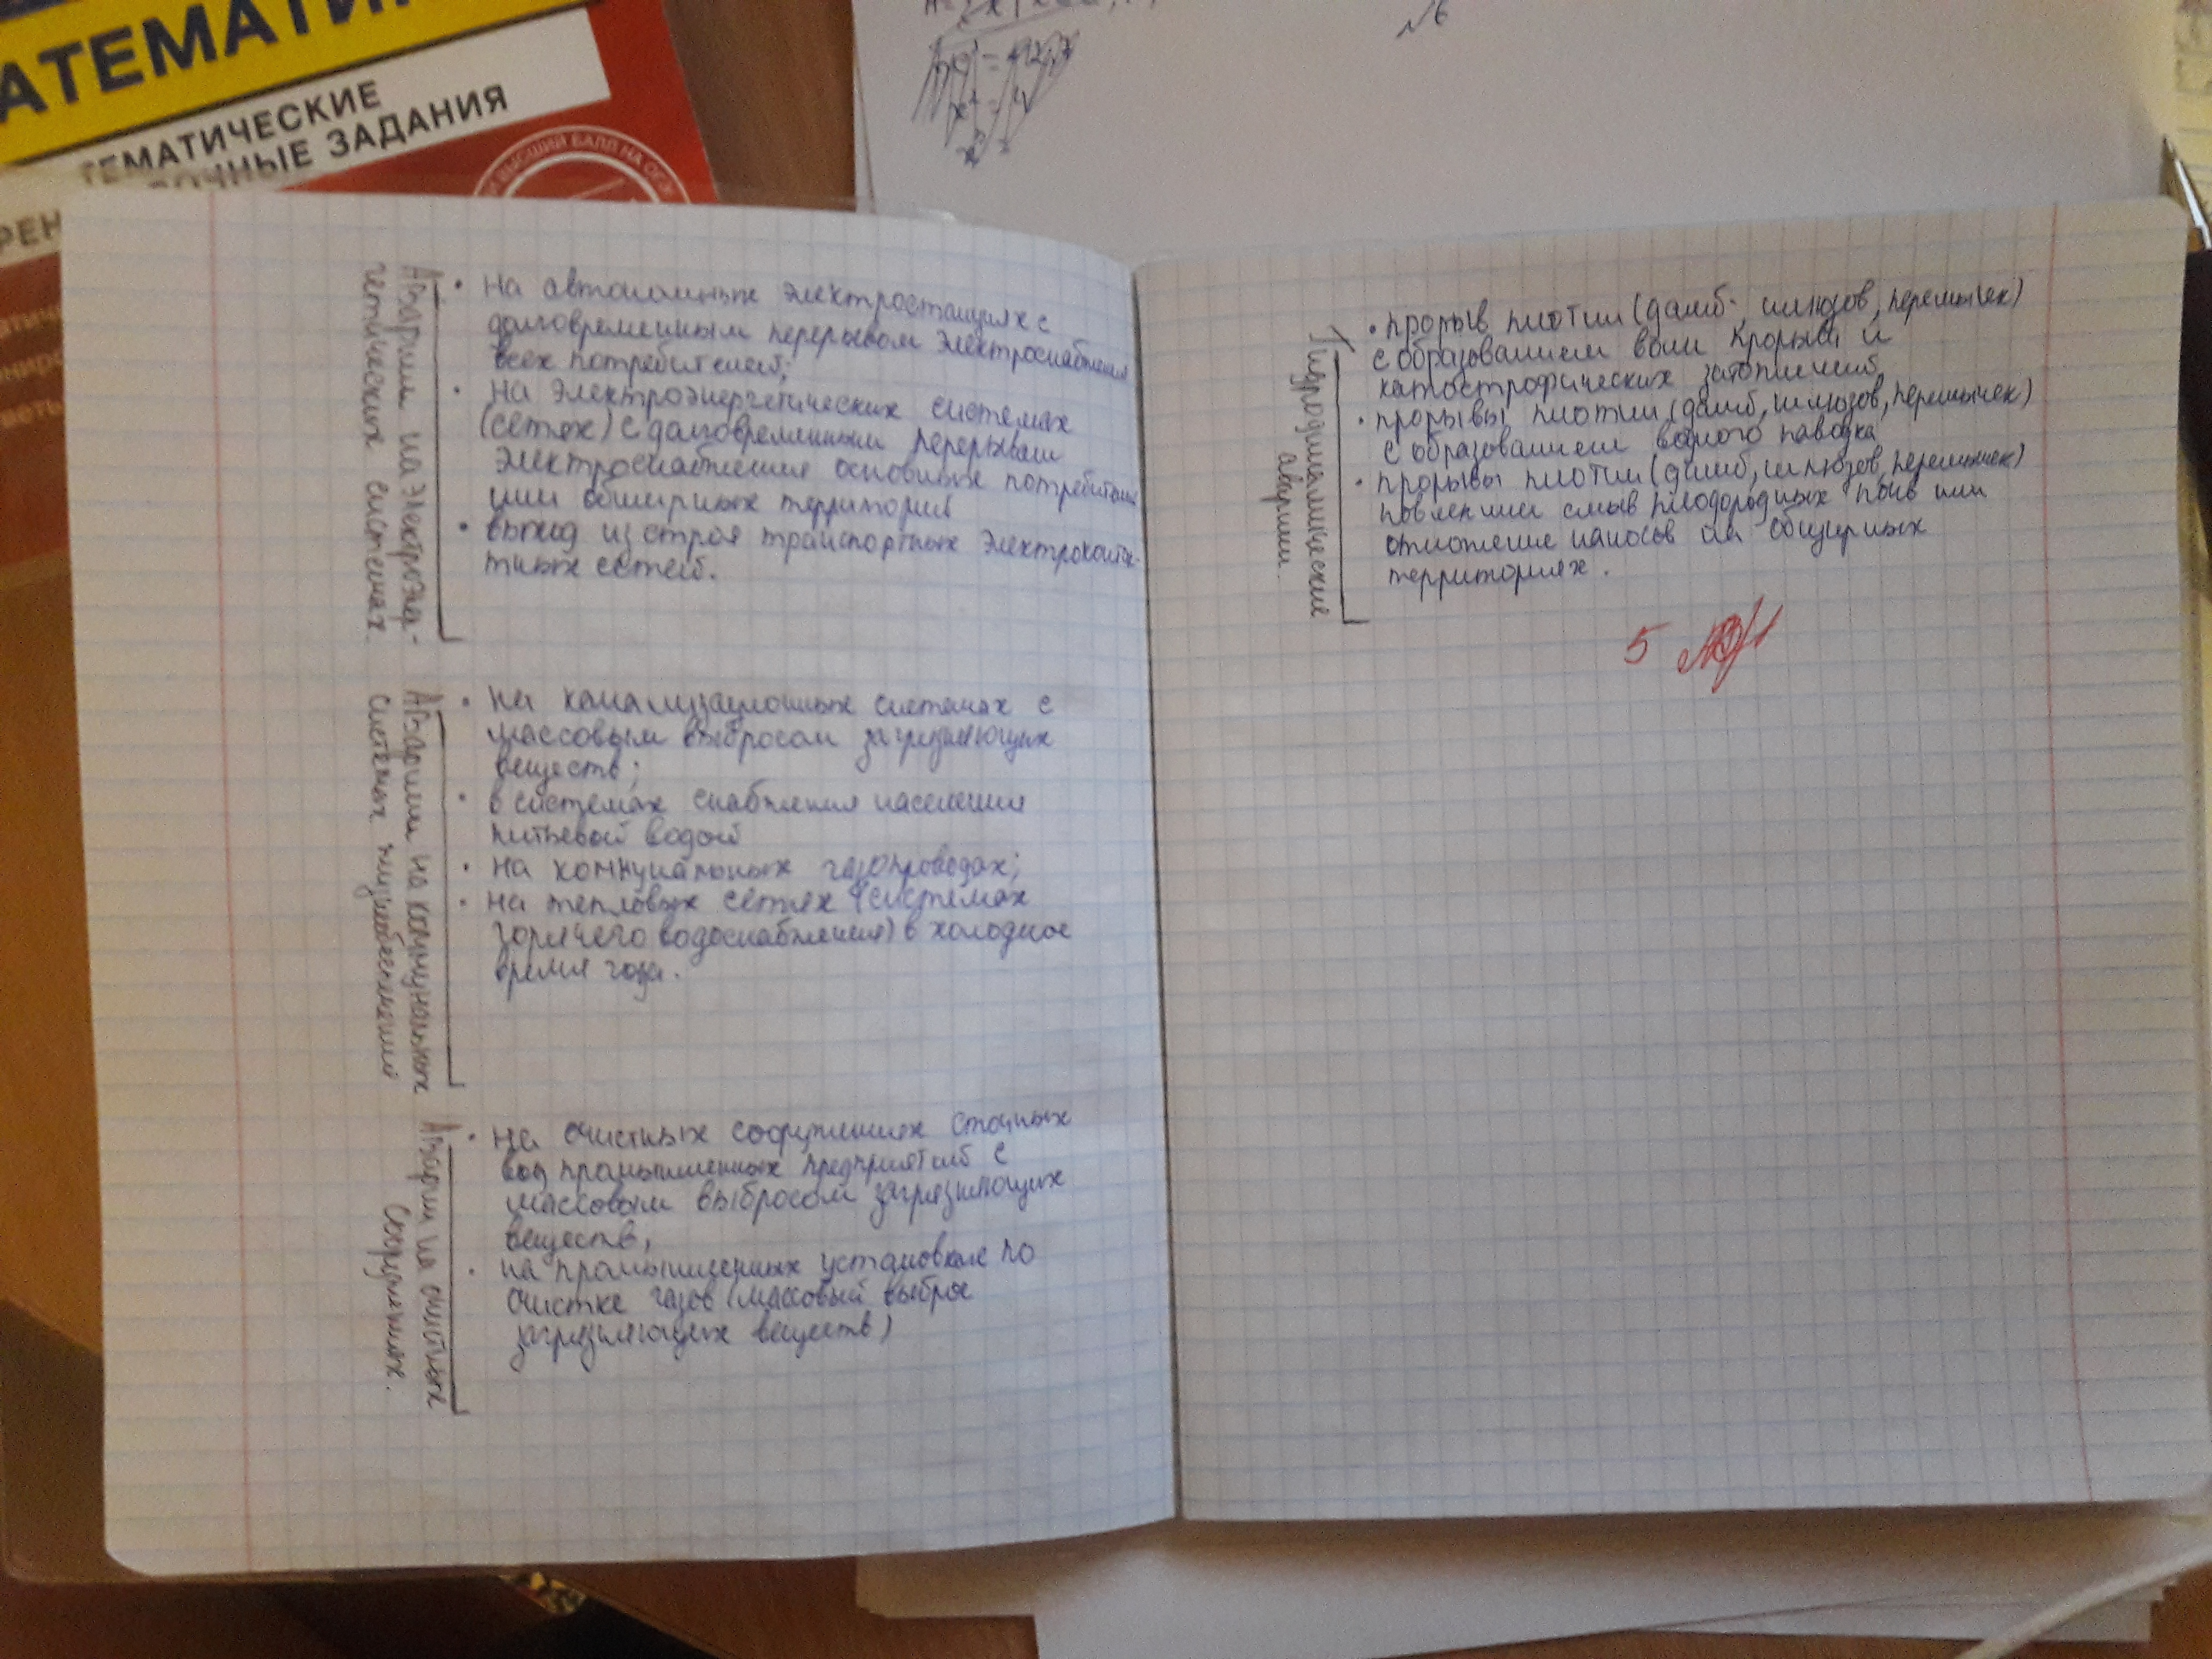 АТЕМАТИК
ТЕМАТИЧЕСКИЕ
ОЧНЫЕ ЗАДАНИЯ
ВЫСШИЙ БАЛЛ НА ОГЭ
РЕН
№6
Аварии на электроэнер-
гетических системах.
• на автономных электростанциях с
долговременным перерывом электроснабжения
всех потребителей;
• на электроэнергетических системах
(сетях) с долговременным перерывом
электроснабжения основных потребителей
или обширных территорий
• выход из строя транспортных электроконтак-
тных сетей.
Аварии на коммунальных
системах жизнеобеспечения
• на канализационных системах с
массовым выбросом загрязняющих
веществ;
• в системах снабжения населения
питьевой водой
• на коммунальных газопроводах;
• на тепловых сетях (системах
горячего водоснабжения) в холодное
время года.
Аварии на очистных
сооружениях.
• на очистных сооружениях сточных
вод промышленных предприятий с
массовым выбросом загрязняющих
веществ,
• на промышленных установках по
очистке газов (массовый выброс
загрязняющих веществ)
Гидродинамические
аварии.
• прорыв плотин (дамб, шлюзов, перемычек)
с образованием волн прорыва и
катострофических затоплений,
• прорывы плотин (дамб, шлюзов, перемычек)
с образованием водного паводка
• прорывы плотин (дамб, шлюзов, перемычек)
повлекшие смыв плодородных почв или
отложение наносов на общирных
территориях.
5